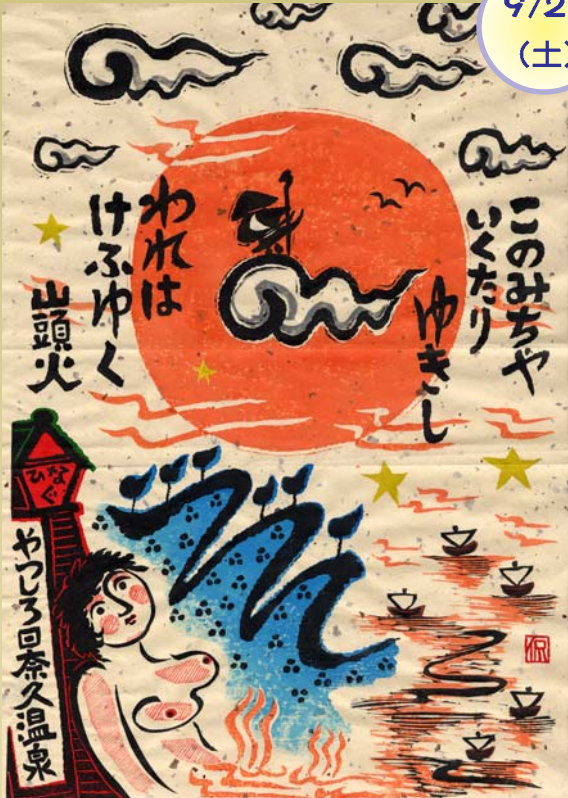 9/2
（土）
このみちや
いくたり
ゆきし
われは
けふゆく
山頭火
ひなぐ
やつしろ日奈久温泉